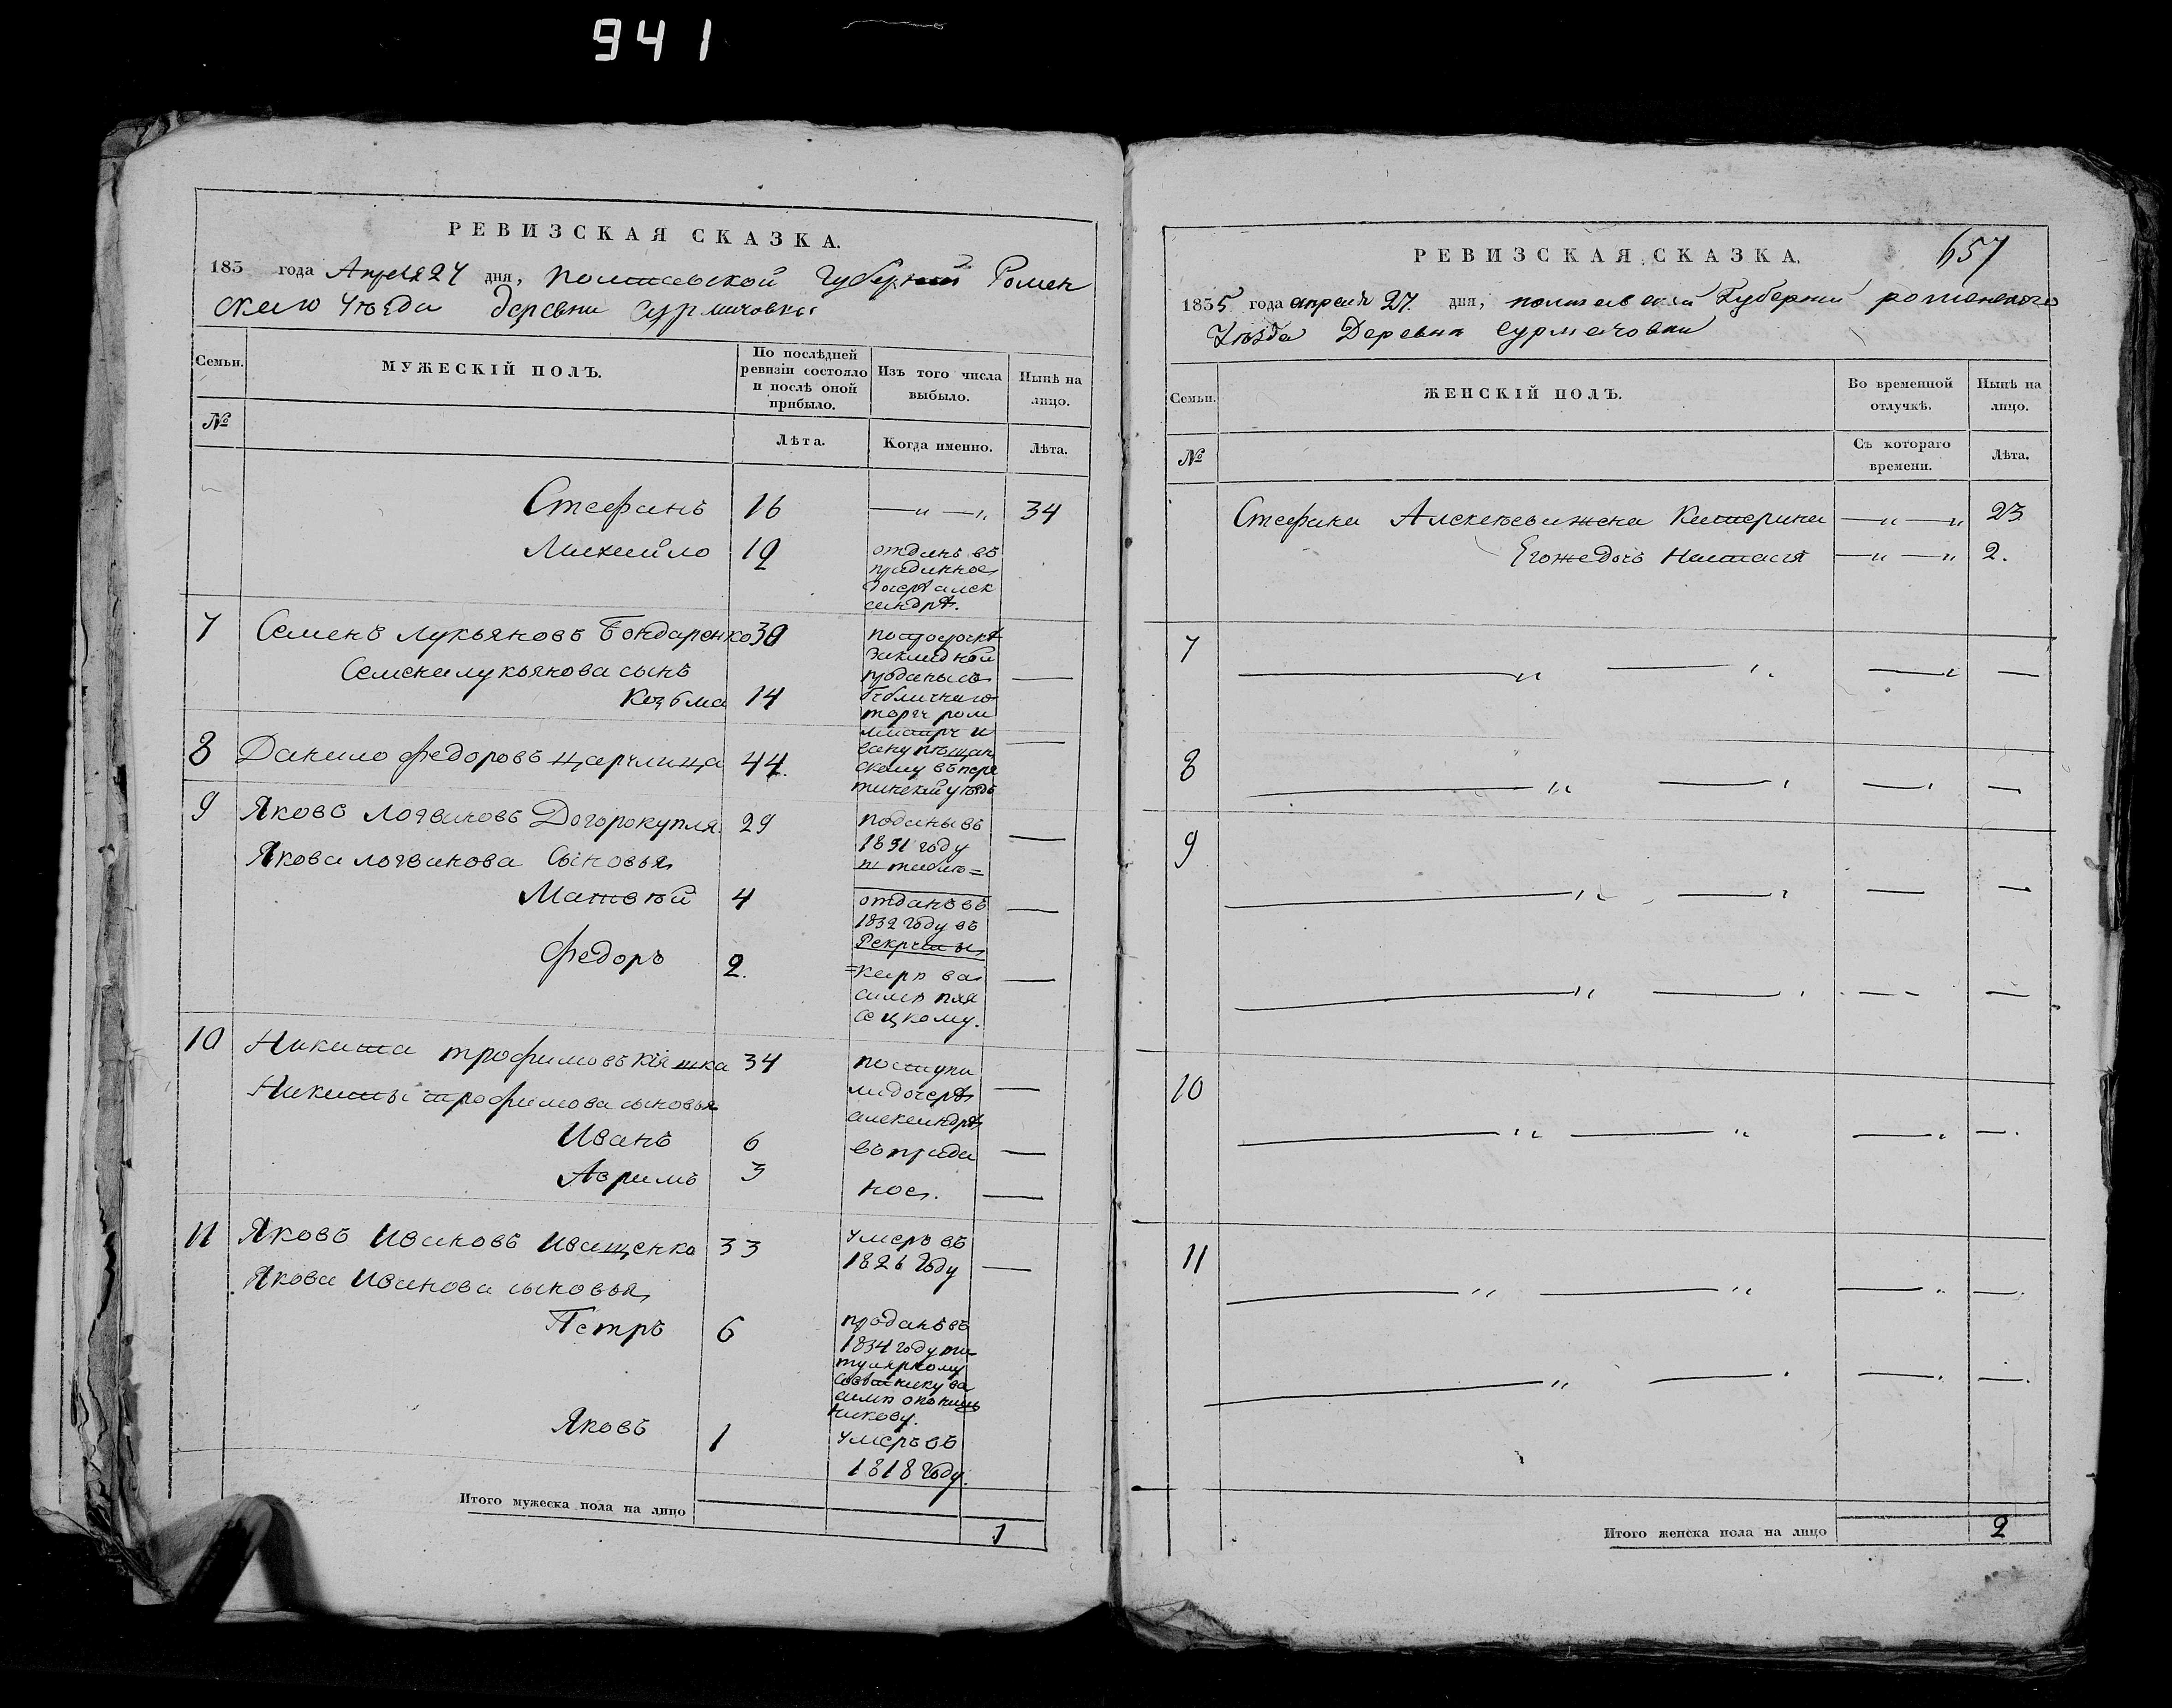 941
РЕВИЗСКАЯ СКАЗКА.
183 года Апреля 27 дня, полтавской Губерніи Ромен
скаго Уезда деревни Сурмачовки
Семьи.
МУЖЕСКІЙ ПОЛЪ.
По послѣдней ревизіи состояло и послѣ оной прибыло.
Изъ того числа выбыло.
Нынѣ на лицо.
№
Лѣта.
Когда именно.
Лѣта.
Стефанъ 16 —„ —„ 34
Михайло 12 отданъ въ
приданное
дочерѣ алек
сандрѣ.
7 Семенъ лукьяновъ Бондаренко 30
Семена лукьянова сынъ
Козьма 14
по просрочкѣ
закладной
проданы съ
публичнаго
торгу ром
8 Данило федоровъ 44.
скому въ пиря
тинский уездъ
9 Яковъ Логвиновъ Догорокупля 29 проданы въ
1831 году
Якова логвинова Сыновья
Матвѣй 4 отданъ въ
1832 году въ
Рекруты
федоръ 2.
10 Никита трофимовъ Кіяшка 34 поступи
ли дочерѣ
Никиты трофимова сыновья
александрѣ
Иванъ 6 въ прида
Аврамъ 3 ное.
11 Яковъ Ивановъ Иващенко 33 умеръ въ
1826 Году
Якова Иванова сыновья
Петръ 6 проданъ въ
1834 году ти
тулярному
советнику ва
Яковъ 1 умеръ въ
1818 Году.
Итого мужеска пола на лицо 1
657
РЕВИЗСКАЯ СКАЗКА.
1835 года апреля 27. дня, полтавской Губерніи роменскаго
Уезда Деревни Сурмачовки
Семьи.
ЖЕНСКІЙ ПОЛЪ.
Во временной отлучкѣ.
Нынѣ на лицо.
№
Съ котораго времени.
Лѣта.
Стефана Алексѣева жена Катерина —„ —„ 23
Его же дочь Настасія —„ —„ 2.
7
8
9
10
11
Итого женска пола на лицо 2